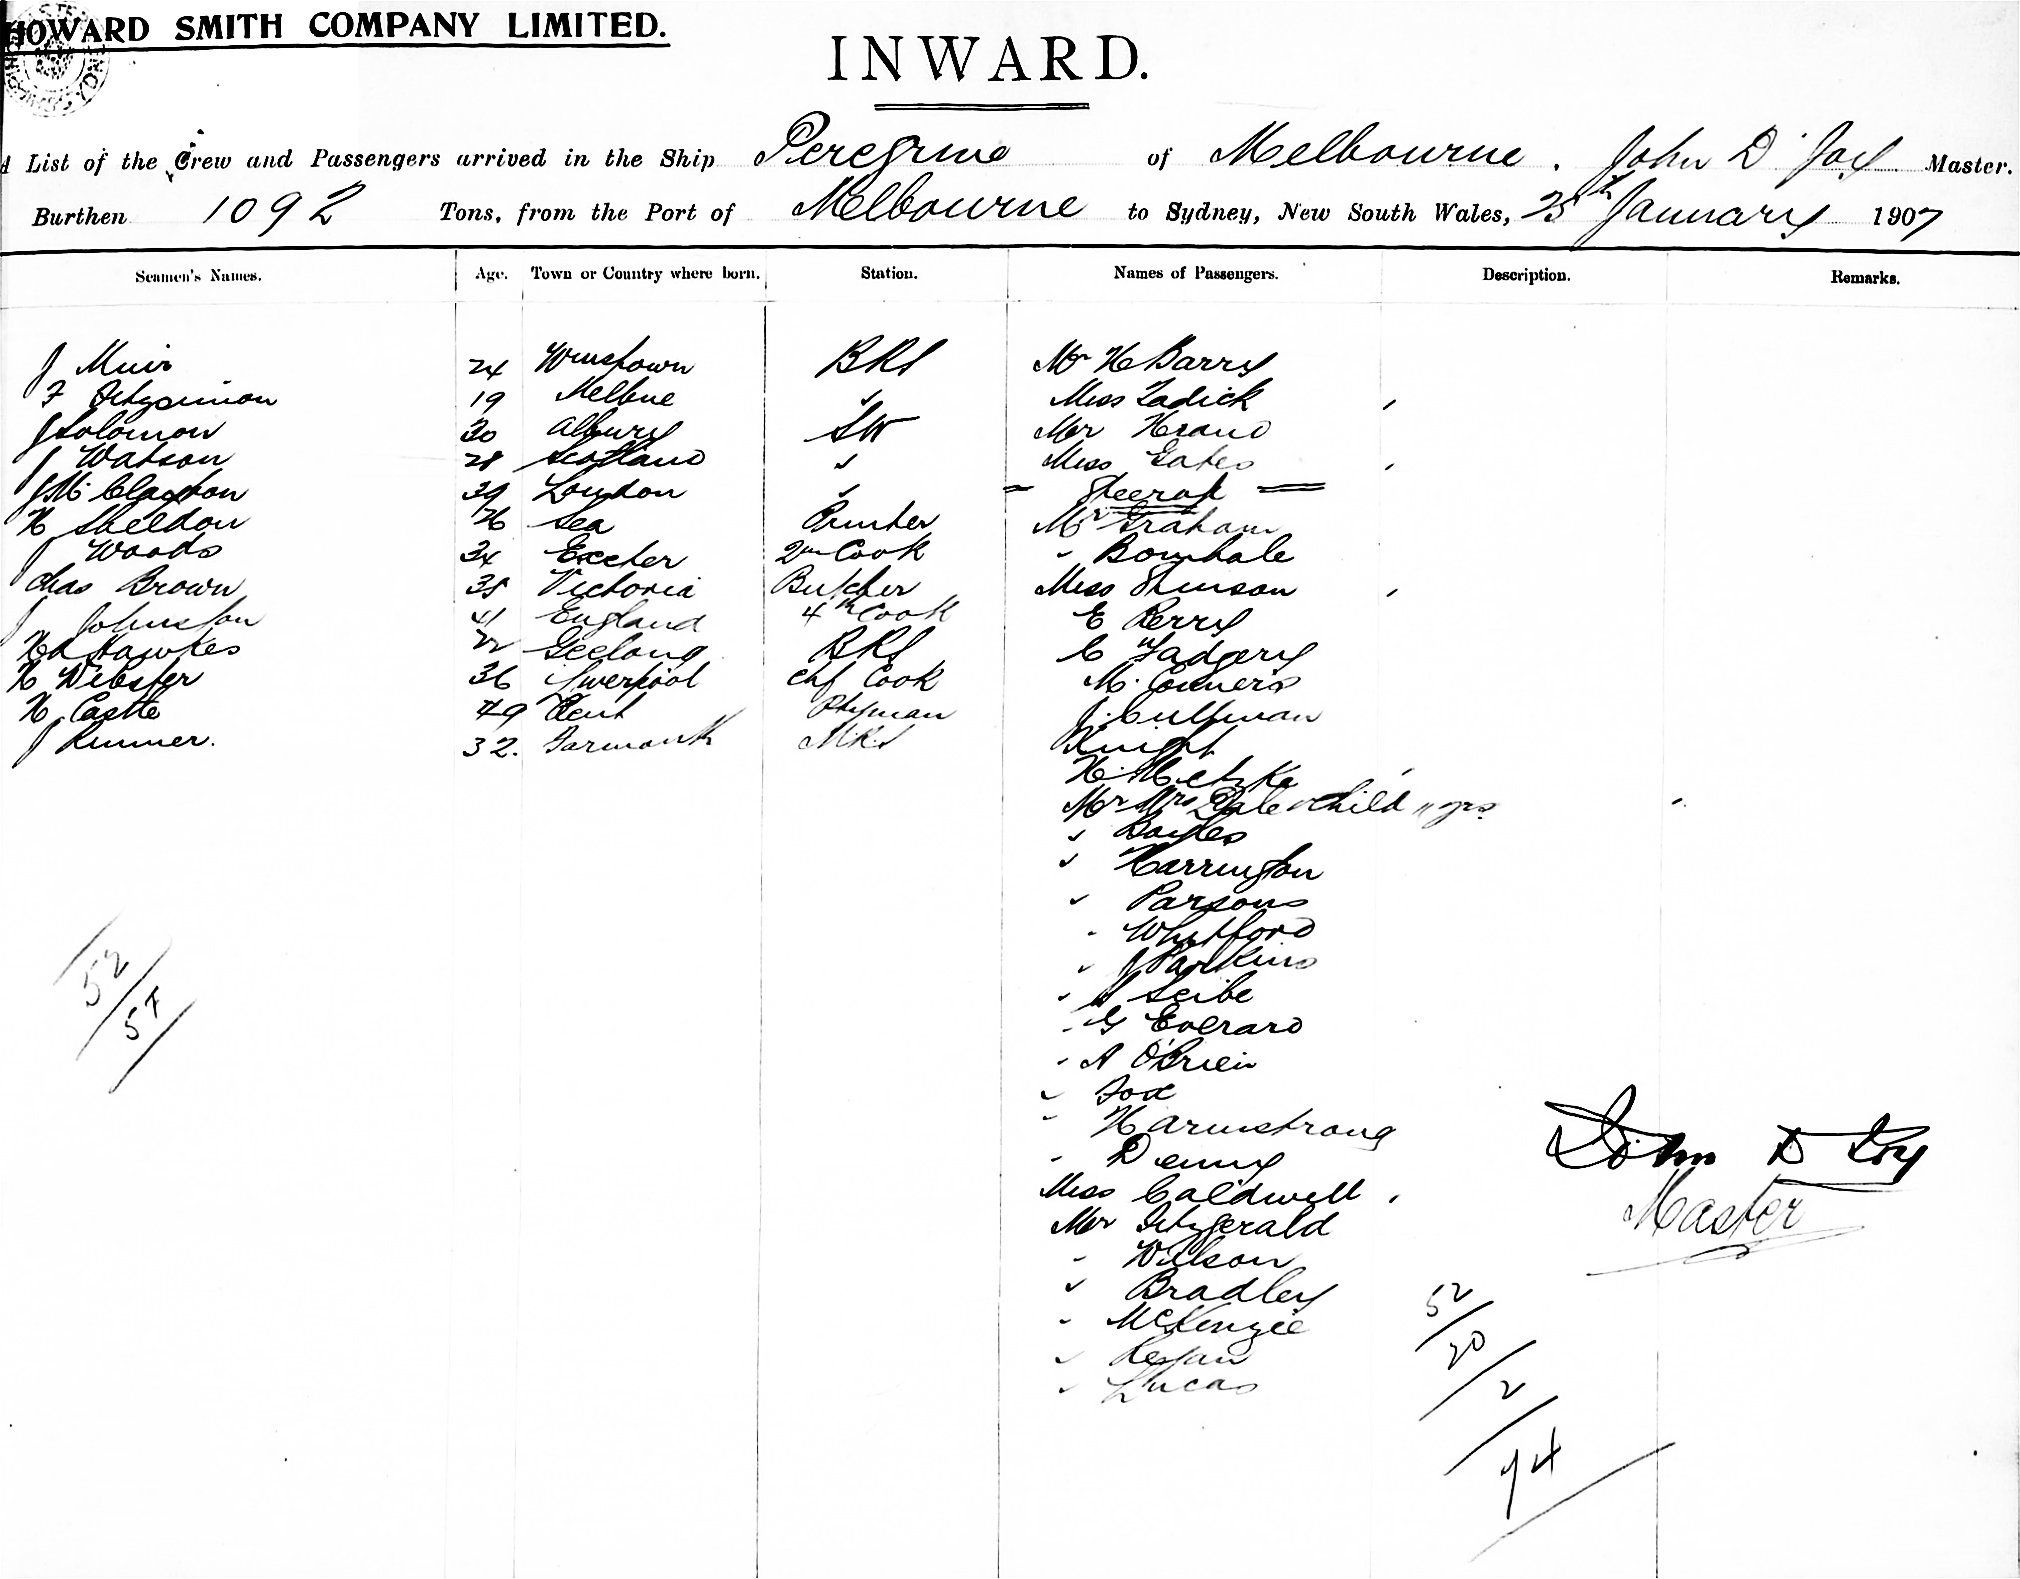 HOWARD SMITH COMPANY LIMITED.
INWARD.
List of the Crew and Passengers arrived in the Ship Peregrine of Melbourne. John D Joy Master.
Burthen 1092 Tons, from the Port of Melbourne to Sydney, New South Wales, 25th January 1907
Seamen's Names. Age. Town or Country where born. Station. Names of Passengers. Description. Remarks.
J Muir 24 Wmstown BRS Mr H Barry
F Fitzsimon 19 Melbne Miss Zadick
J Solomon 30 Albury SW Mr
J Watson 28 Scotland Miss Gates
J McClayton 39 London Steerage
H Sheldon 26 Sea Printer Mr Graham
J Woods 34 Exeter 2nd Cook
Chas Brown 35 Victoria Butcher Miss
J Johnston 41 England 4th Cook E Perry
Hawkes 22 Geelong BRS C
H Webster 36 Liverpool Chf Cook M. Conners
H Castle 49 Kent J.
J Rimmer. 32. Yarmouth Knight
H. Metzke
Mr Mrs Dale child yrs
Boyles
Harrington
Parsons
Whitford
J Parkins
Seibe
G Everard
A O'Brien
Fox
H Armstrong
Denny
Miss Caldwell
Mr Fitzgerald
Wilson
Bradley
McKenzie
Regan
Lucas
52
57
John D Joy
Master
52
20
2
74